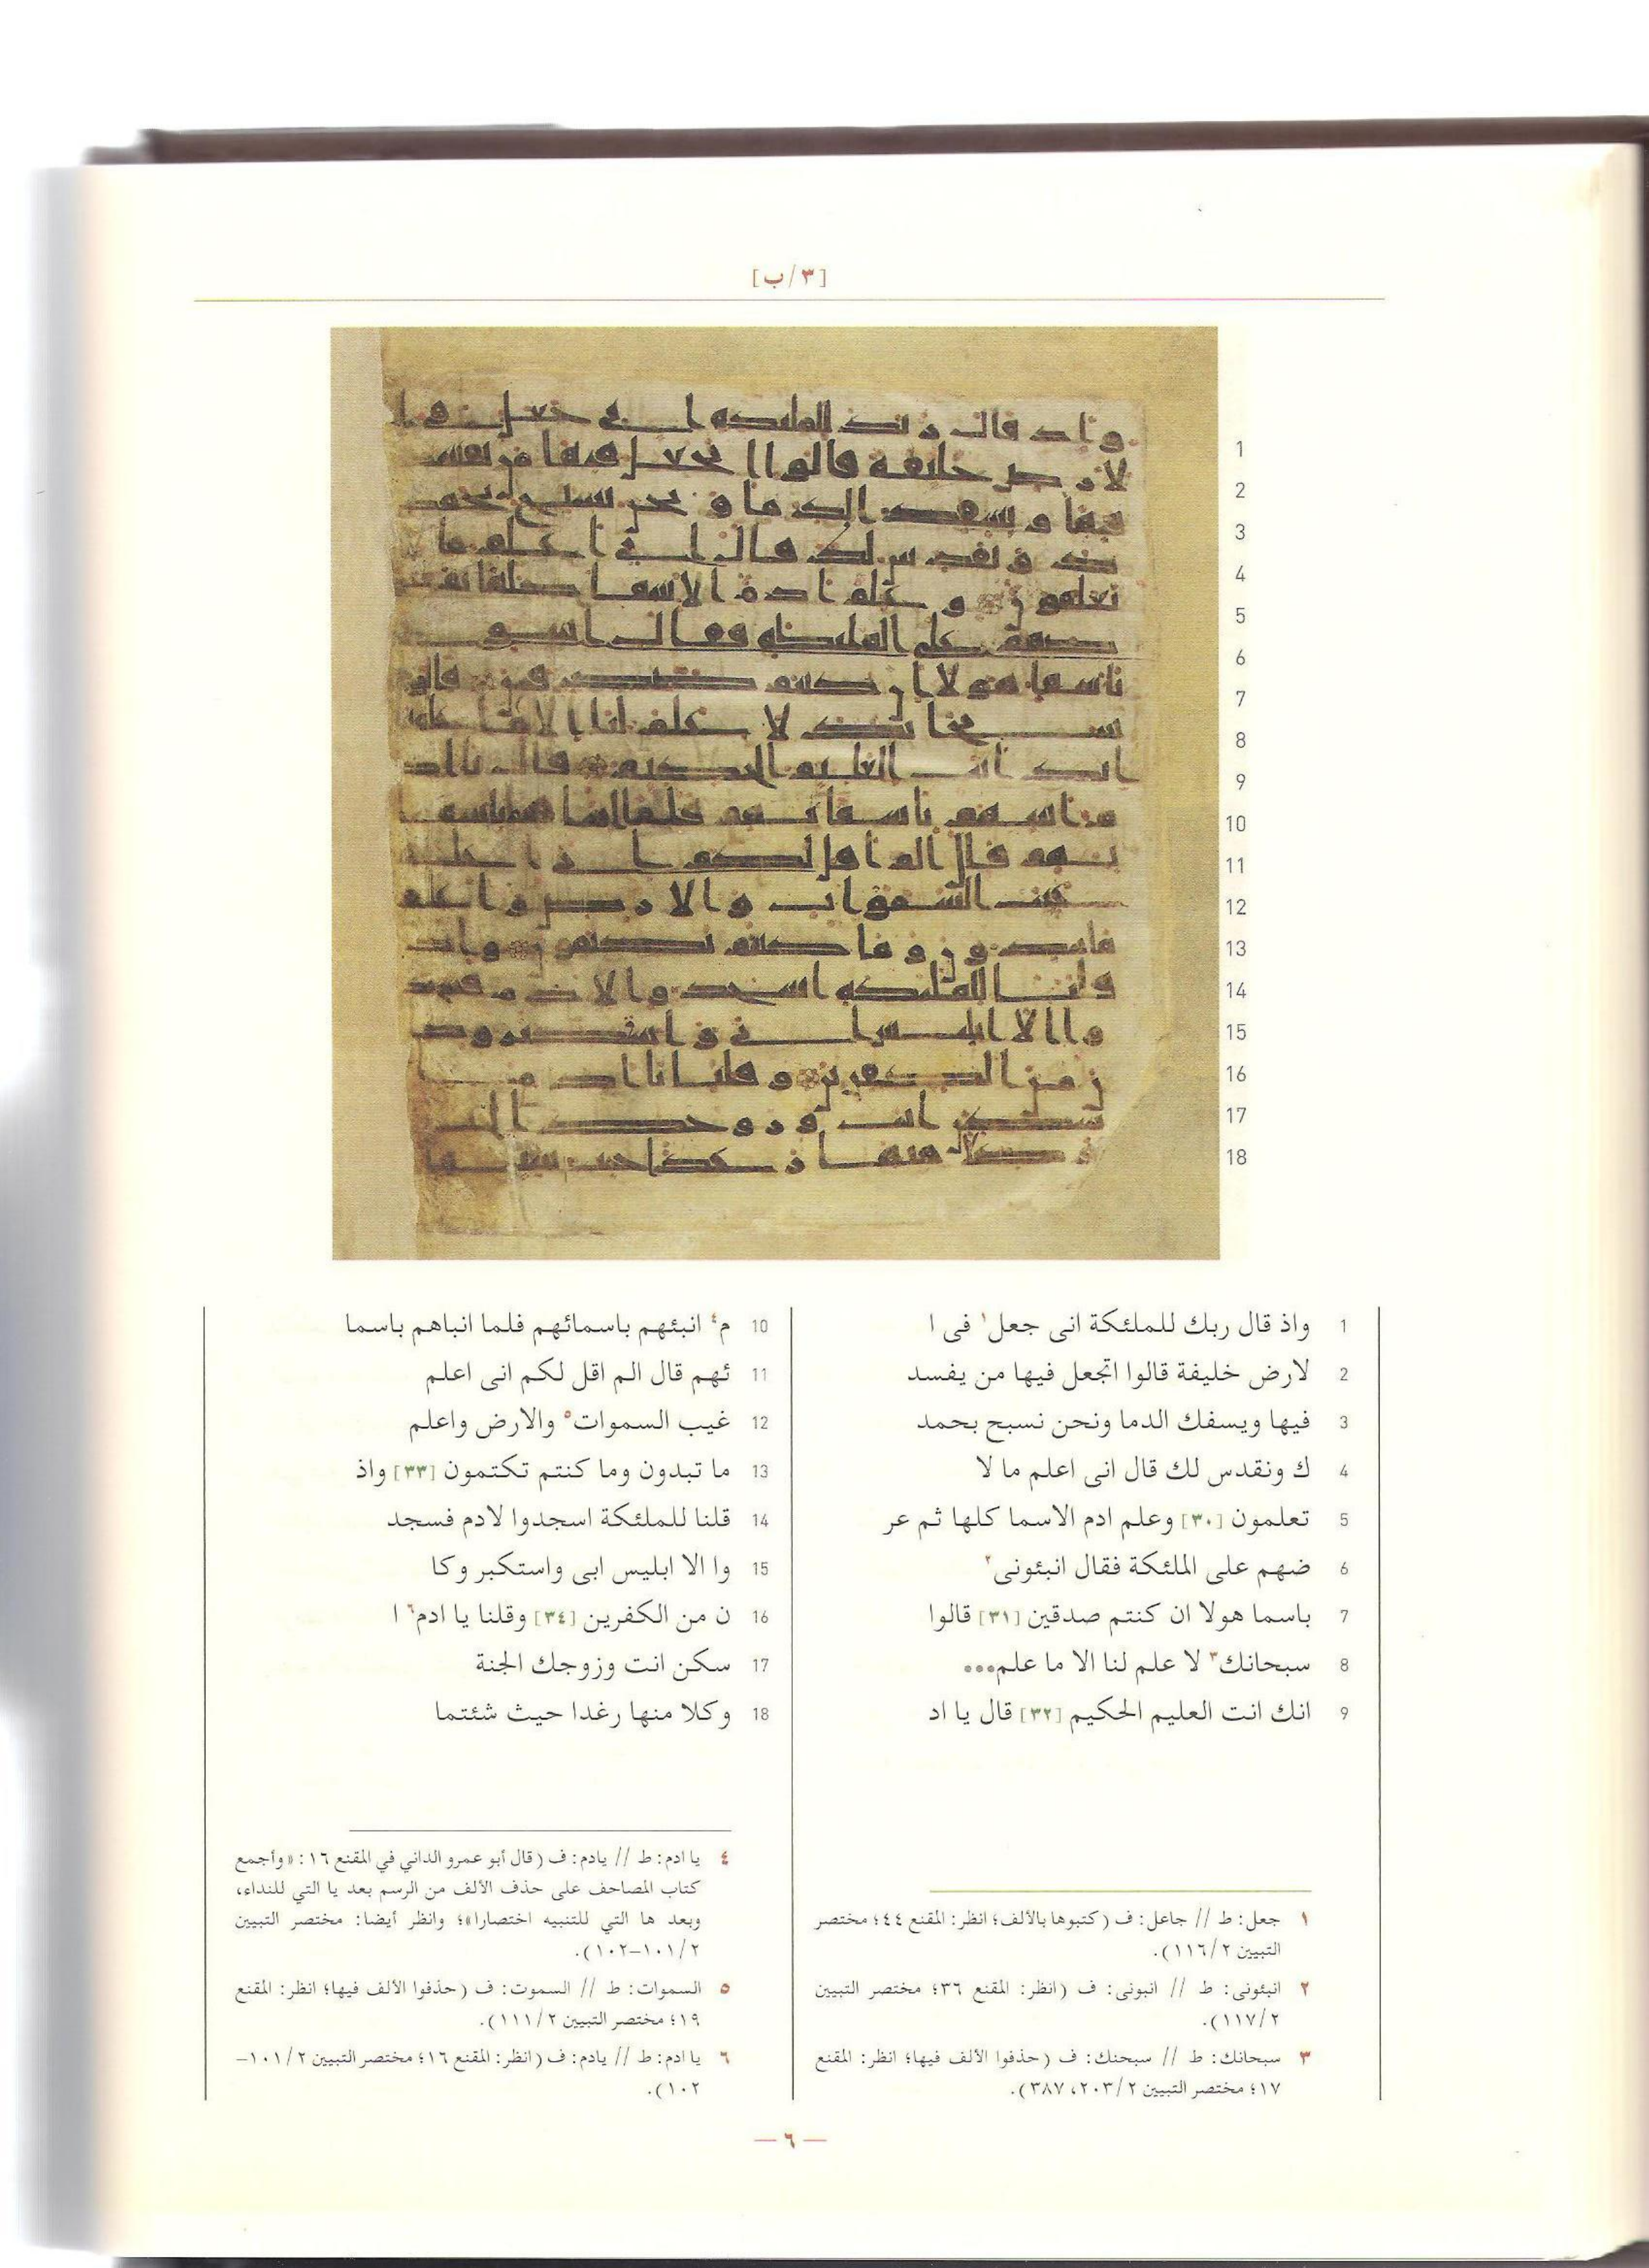 [٣/ب]
1 واذ قال ربك للملئكة انى جعل١ فى ا
2 لارض خليفة قالوا اتجعل فيها من يفسد
3 فيها ويسفك الدما ونحن نسبح بحمد
4 ك ونقدس لك قال انى اعلم ما لا
5 تعلمون [٣٠] وعلم ادم الاسما كلها ثم عر
6 ضهم على الملئكة فقال انبئونى٢
7 باسما هولا ان كنتم صدقين [٣١] قالوا
8 سبحانك٣ لا علم لنا الا ما علم...
9 انك انت العليم الحكيم [٣٢] قال يا اد
10 م٤ انبئهم باسمائهم فلما انباهم باسما
11 ئهم قال الم اقل لكم انى اعلم
12 غيب السموات٥ والارض واعلم
13 ما تبدون وما كنتم تكتمون [٣٣] واذ
14 قلنا للملئكة اسجدوا لادم فسجد
15 وا الا ابليس ابى واستكبر وكا
16 ن من الكفرين [٣٤] وقلنا يا ادم٦ ا
17 سكن انت وزوجك الجنة
18 وكلا منها رغدا حيث شئتما
١ جعل: ط // جاعل: ف (كتبوها بالألف؛ انظر: المقنع ٤٤؛ مختصر
التبيين ١١٦/٢).
٢ انبئونى: ط // انبونى: ف (انظر: المقنع ٣٦؛ مختصر التبيين
١١٧/٢).
٣ سبحانك: ط // سبحنك: ف (حذفوا الألف فيها؛ انظر: المقنع
١٧؛ مختصر التبيين ٢٠٣/٢، ٣٨٧).
٤ يا ادم: ط // يادم: ف (قال أبو عمرو الداني في المقنع ١٦: «وأجمع
كتاب المصاحف على حذف الألف من الرسم بعد يا التي للنداء،
وبعد ها التي للتنبيه اختصارا»؛ وانظر أيضا: مختصر التبيين
١٠١/٢–١٠٢).
٥ السموات: ط // السموت: ف (حذفوا الألف فيها؛ انظر: المقنع
١٩؛ مختصر التبيين ١١١/٢).
٦ يا ادم: ط // يادم: ف (انظر: المقنع ١٦؛ مختصر التبيين ١٠١/٢–
١٠٢).
— ٦ —